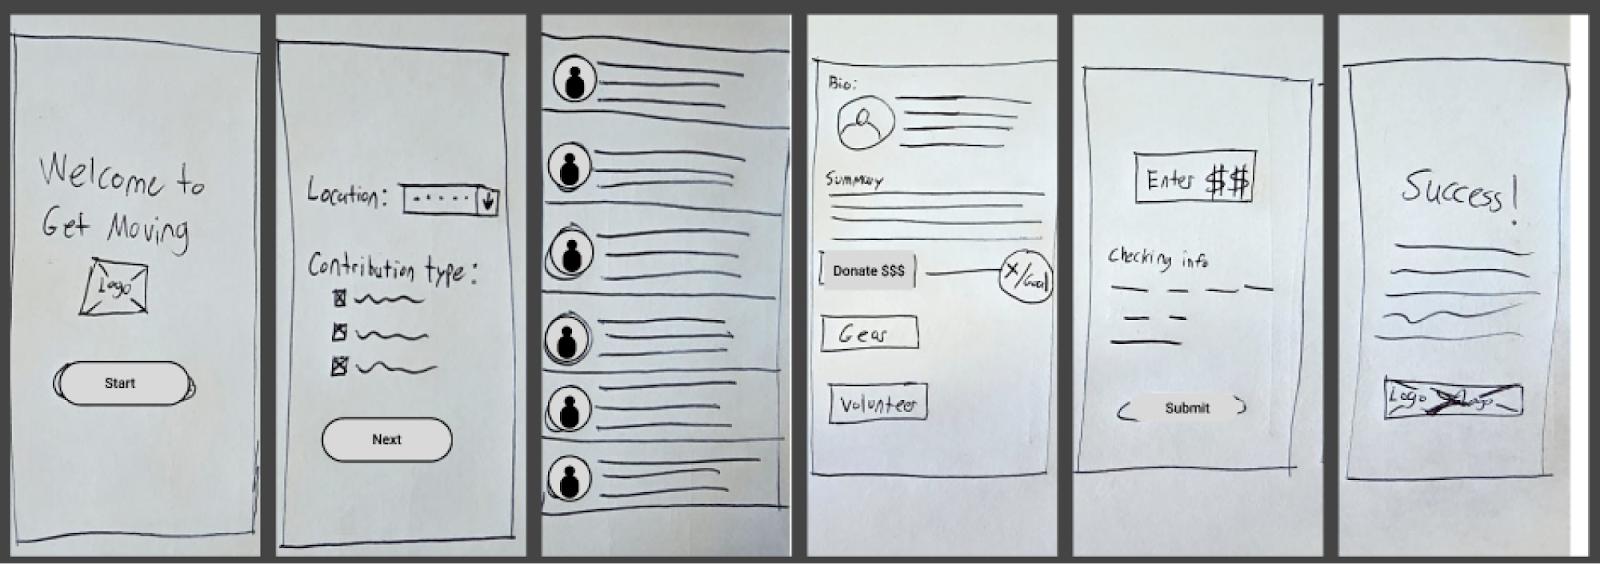 Welcome to
Get Moving
Logo
Start
Location:
Contribution type:
Next
Bio:
Summary
Donate $$$
X/Goal
Gear
Volunteer
Enter $$
Checking info
Submit
Success!
Logo
Logo